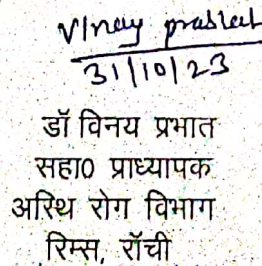 Vinay prabhat
31/10/23
डॉ विनय प्रभात
सहा0 प्राध्यापक
अस्थि रोग विभाग
रिम्स, राँची